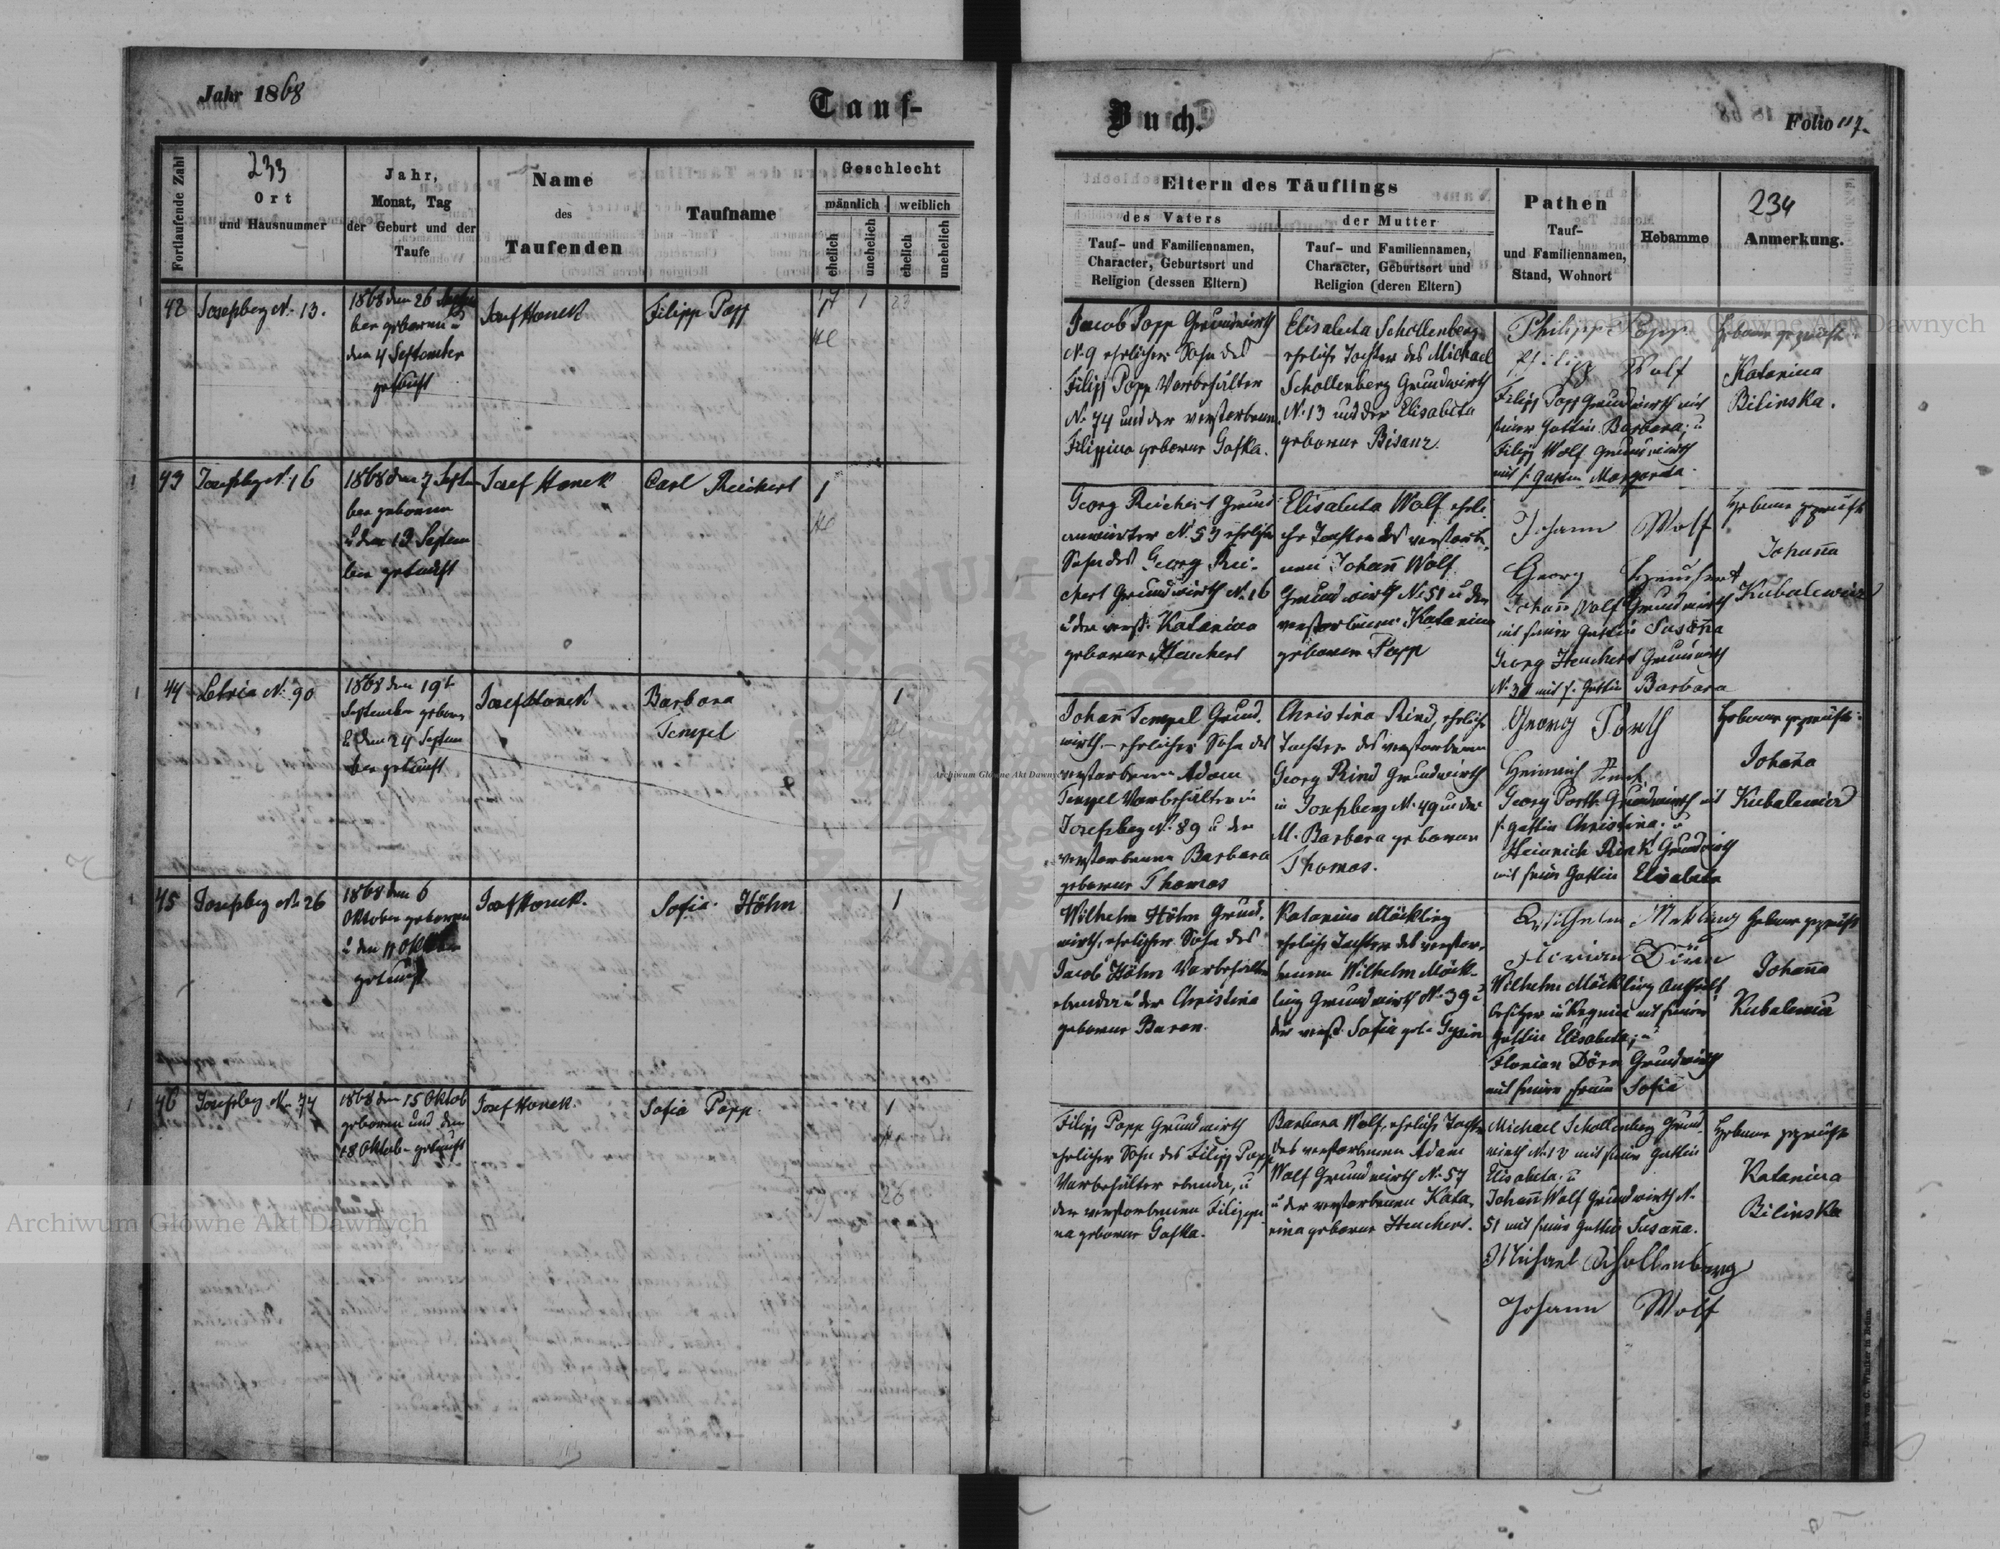 Jahr 1868
Tauf-
Buch.
Folio 117.
Fortlaufende Zahl
233
Ort
und Hausnummer
Jahr,
Monat, Tag
der Geburt und der
Taufe
Name
des
Taufenden
Taufname
Geschlecht
männlich
weiblich
ehelich
unehelich
ehelich
unehelich
Eltern des Täuflings
des Vaters
Tauf- und Familiennamen,
Character, Geburtsort und
Religion (dessen Eltern)
der Mutter
Tauf- und Familiennamen,
Character, Geburtsort und
Religion (deren Eltern)
Pathen
Tauf-
und Familiennamen,
Stand, Wohnort
Hebamme
234
Anmerkung.
42
Josefsberg N. 13.
1868 den 26
ber geboren u
den 4 September
getauft
Josef Hanek
Filipp Popp
1
Jacob Popp Grundwirth
N. 9 ehelicher Sohn des
Filipp Popp Vorbehälter
N. 74 und der verstorbenen
Filippina geborene Gafka.
Elisabeta Schollenberg
eheliche Tochter des Michael
Schollenberg Grundwirth
N. 13 und der Elisabeta
geborene Bisanz
Philipp Popp
Filipp Wolf
Filipp Popp Grundwirth mit
seiner Gattin Barbara; u
Filipp Wolf Grundwirth
mit s. Gattin Margareta.
Hebame geprüft
Katarina
Bilinska.
43
Josefsberg N. 16
1868 den 7 Septem
ber geboren
u den 13 Septem
ber getauft
Josef Hanek
Carl Reichert
1
Georg Reichert Grund
N. 53 ehelicher
Sohn des Georg Rei-
chert Grundwirth N. 16
u der verst. Katarina
geborene Heuchert
Elisabeta Wolf eheli
che Tochter des verstorb.
nen Johann Wolf
Grundwirth N. 51 u der
verstorbenen Katarina
geborene Popp
Johann Wolf
Georg Heuchert
Johann Wolf Grundwirth
mit seiner Gattin Susanna
Georg Heuchert Grundwirth
N. 38 mit s. Gattin Barbara
Hebame geprüft
Johanna
Kubalewicz
44
Letnia N. 90
1868 den 19t
September geboren
u den 24 Septem
ber getauft
Josef Hanek
Barbara
Tempel
1
Johann Tempel Grund.
wirth.- ehelicher Sohn des
verstorbenen Adam
Tempel Vorbehälter in
Josefsberg N. 89 u der
verstorbenen Barbara
geborene Thomas
Christina Rind, eheliche
Tochter des verstorbenen
Georg Rind Grundwirth
in Josefsberg N. 49 und der
M. Barbara geborene
Thomas.
Georg Porth
Heinrich
Georg Porth Grundwirth mit
s. Gattin Christina. u
Heinrich Grundwirth
mit seiner Gattin Elisabeta
Hebame geprüft
Johanna
Kubalewicz
45
Josefsberg N. 26
1868 den 6
Oktober geboren
u den 11 Oktober
getauft
Josef Hanek.
Sofia Höhn
1
Wilhelm Höhn Grund.
wirth, ehelicher Sohn des
Jacob Höhn Vorbehälter
ebenda u der Christina
geborene Baron.
Katarina Möckling
eheliche Tochter des verstor.
benen Wilhelm Möck-
ling Grundwirth N. 39 u
der verst. Sofia geb.
Wilhelm Mekling
Florian Dörn
Wilhelm Möckling
besitzer in mit seiner
Gattin Elisabeta; u
Florian Dörn Grundwirth
mit seiner Frau Sofia
Hebame geprüft
Johanna
Kubalewicz
46
Josefsberg N. 74
1868 den 15 Oktob
geboren und den
18 Oktob- getauft
Josef Hanek.
Sofia Popp
1
Filipp Popp Grundwirth
ehelicher Sohn des Filipp Popp
Vorbehälter ebenda, u
der verstorbenen Filippi
na geborene Gafka.
Barbara Wolf, eheliche Tochter
des verstorbenen Adam
Wolf Grundwirth N. 57
u der verstorbenen Kata.
rina geborene Heuchert.
Michael Schollenberg Grund
wirth N. 13 mit seiner Gattin
Elisabeta. u
Johann Wolf Grundwirth N.
51 mit seiner Gattin Susanna.
Michael Schollenberg
Johann Wolf
Hebame geprüft
Katarina
Bilinska
Archiwum Główne Akt Dawnych
Archiwum Główne Akt Dawnych
Archiwum Główne Akt Dawnych